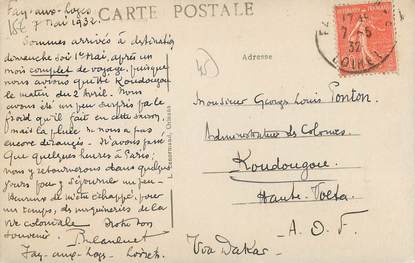 CARTE POSTALE
Fay-aux-Loges
7 Mai 1932.
Sommes arrivés à destination
dimanche soir 1er Mai, après un
mois complet de voyage, puisque
nous avions quitté Koudougou
le matin du 2 Avril. Nous
avons été un peu surpris par le
froid qu'il fait en cette saison,
mais la pluie ne nous a pas
encore dérangés. N'avons passé
que quelques heures à Paris,
nous y retournerons dans quelques
jours pour y séjourner un peu.
Heureux de m'être échappé, pour
un temps, des de la
vie coloniale. Votre bon
souvenir.
Fay-aux-Loges Loiret
Adresse
Monsieur Georges Louis Ponton
Administrateur des Colonies
Koudougou
Haute-Volta
A.O.F.
Via Dakar
17
7-5
32
LOIRET